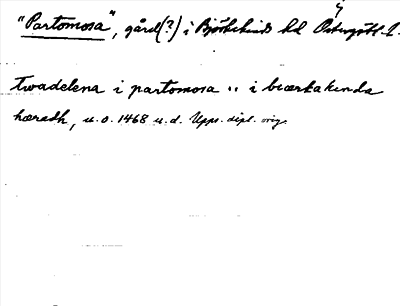 "Partomosa", gård(?) i Björkekinds hd Östergötl. l.
twadelena i partomosa .. i biærkakinda
hæradh, u. o. 1468 u. d. Upps. dipl. orig.